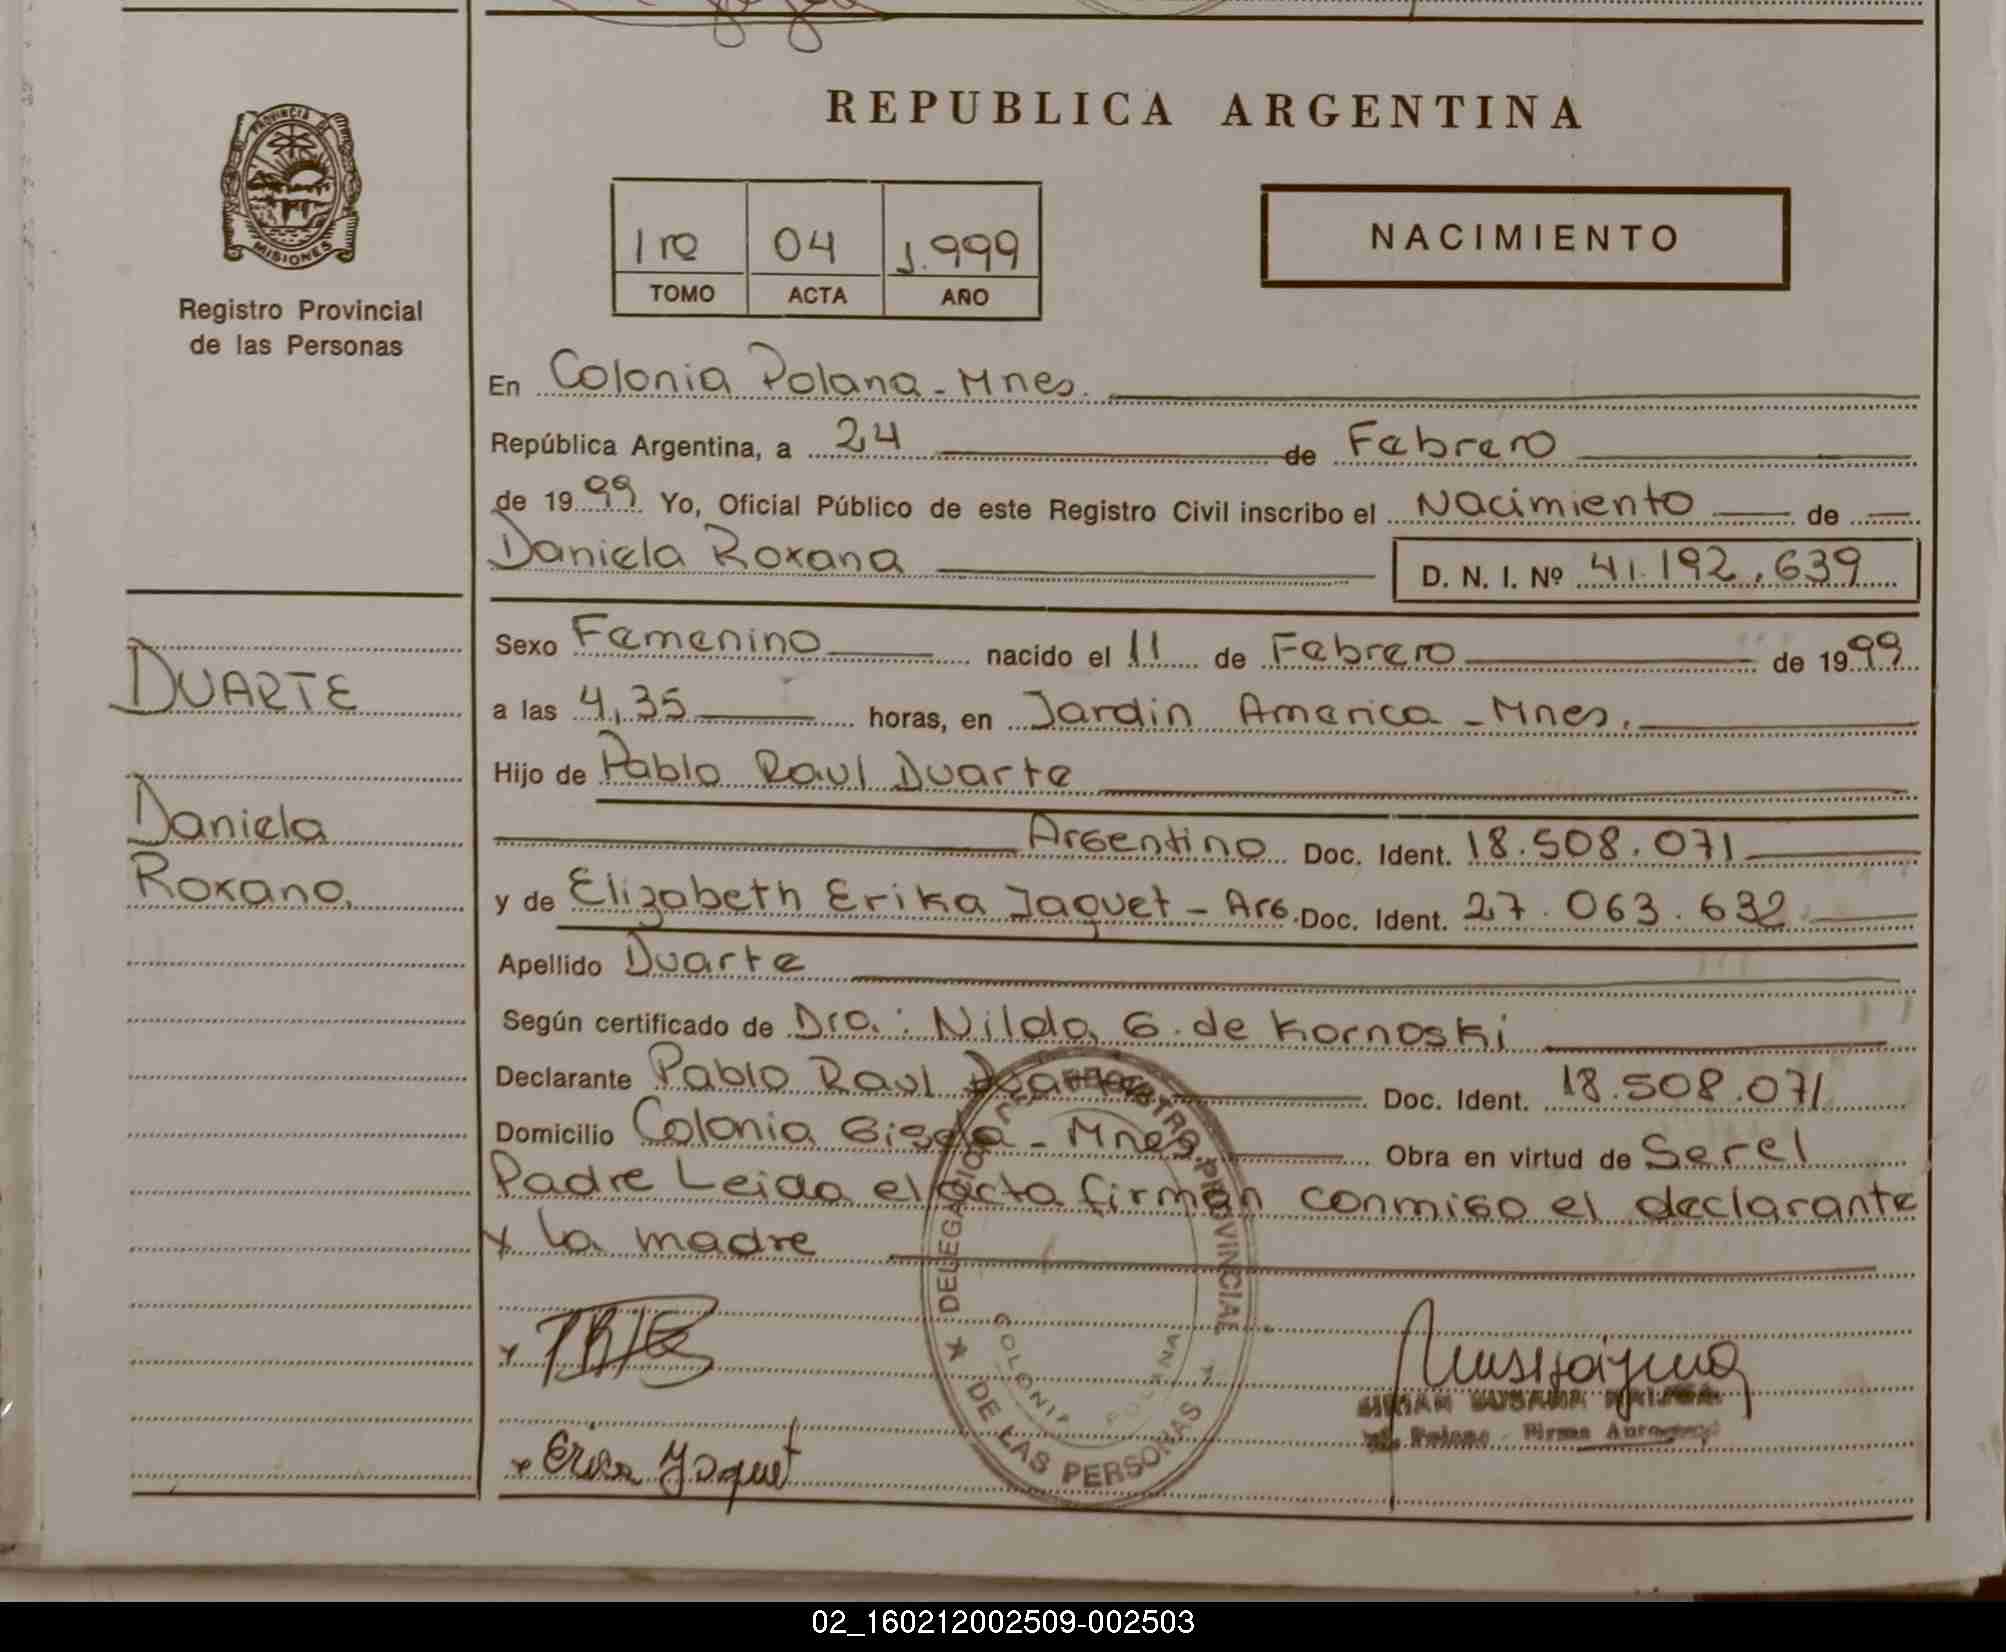 REPUBLICA ARGENTINA
PROVINCIA DE
MISIONES
Registro Provincial
de las Personas
1ro 04 1.999
TOMO ACTA AÑO
NACIMIENTO
En Colonia Polana - Mnes.
República Argentina, a 24 de Febrero
de 1999 Yo, Oficial Público de este Registro Civil inscribo el Nacimiento de
Daniela Roxana D. N. I. Nº 41.192.639
Sexo Femenino nacido el 11 de Febrero de 1999
DUARTE
a las 4,35 horas, en Jardin America - Mnes.
Hijo de Pablo Raul Duarte
Daniela
Argentino Doc. Ident. 18.508.071
Roxana.
y de Elizabeth Erika Jaquet - Arg. Doc. Ident. 27.063.632
Apellido Duarte
Según certificado de Dra.: Nilda G. de Kornoski
Declarante Pablo Raul Duarte Doc. Ident. 18.508.071
Domicilio Colonia Gisela - Mnes. Obra en virtud de Ser el
Padre Leida el acta firman conmigo el declarante
y la madre
DELEGACION REGISTRO PROVINCIAL
DE LAS PERSONAS
COLONIA POLANA
x Erica Jaquet
02_160212002509-002503